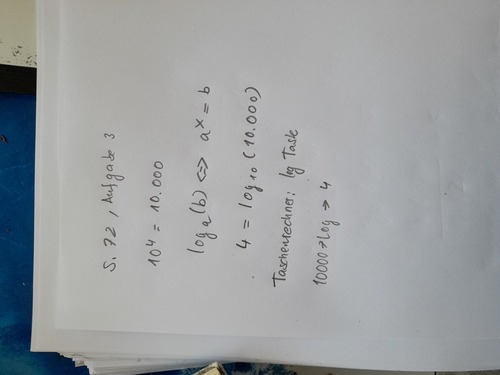 S. 72, Aufgabe 3
10⁴ = 10.000
logₐ(b) <=> aˣ = b
4 = log₁₀ (10.000)
Taschenrechner: log Taste
10000 → log → 4